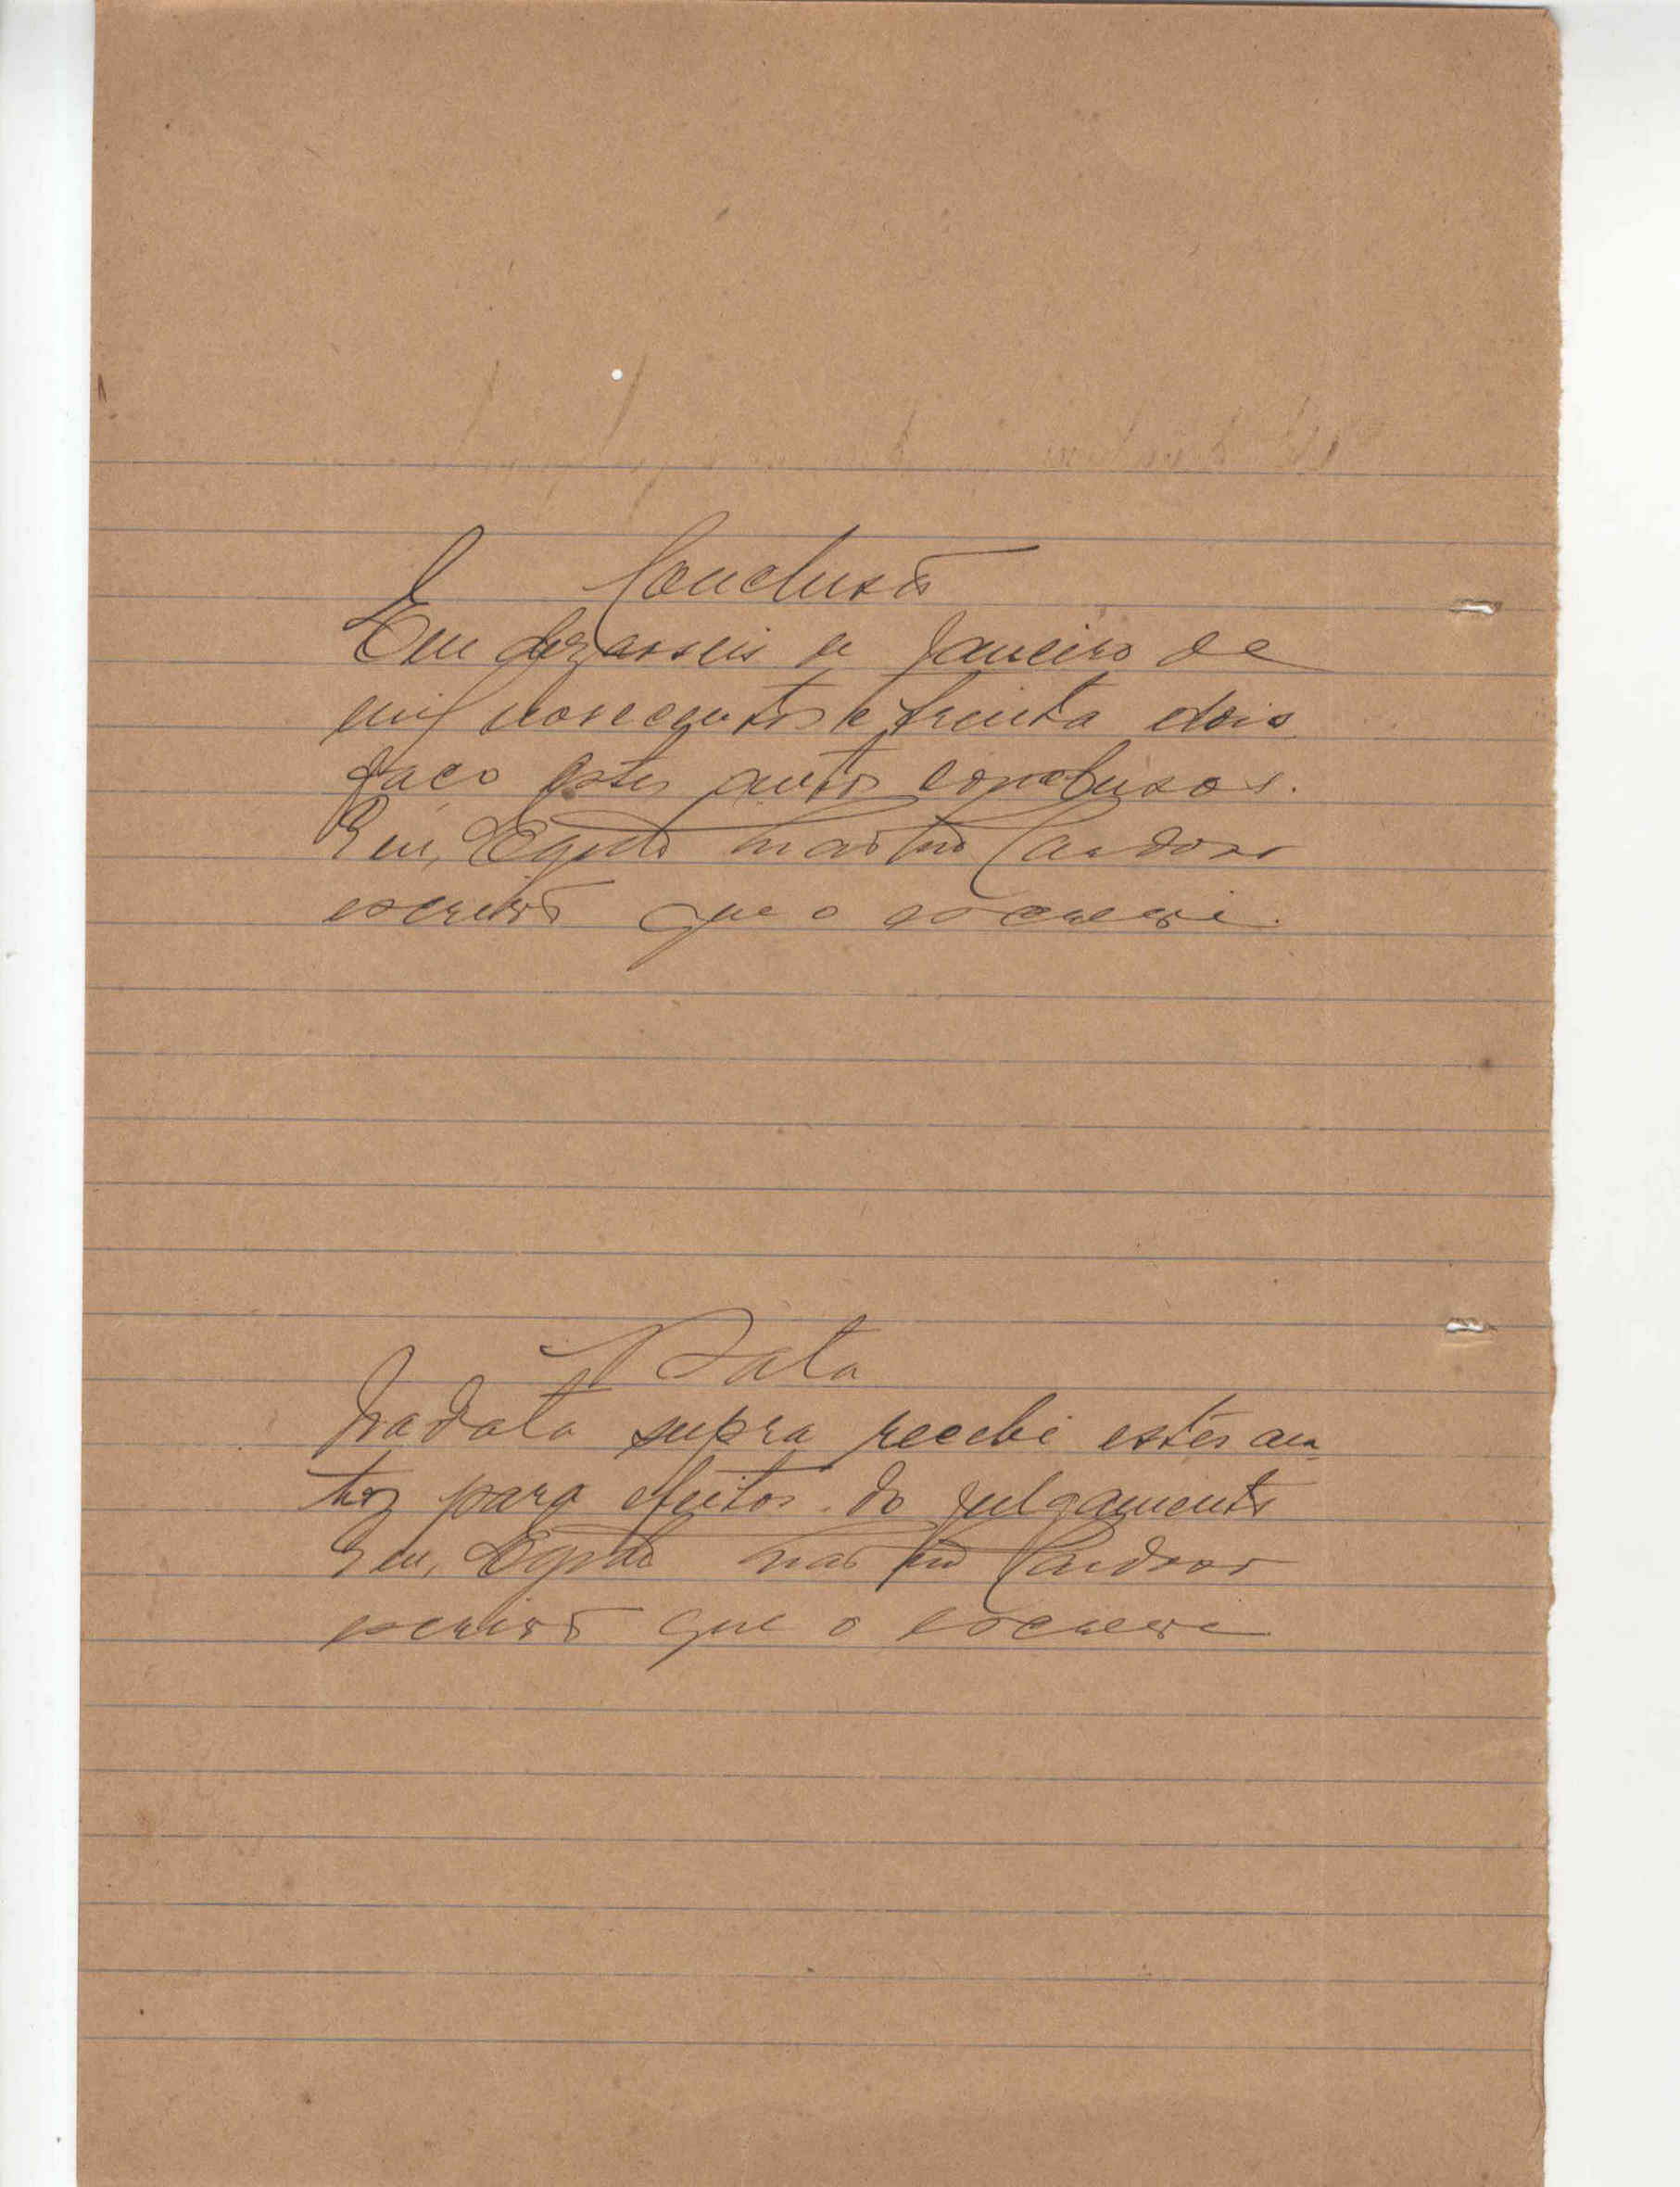 Conclusão
Em dezasseis de Janeiro de
mil novecentos e trinta e dois
faço estes autos conclusos.
Eu, Egydio Martins Cardoso
escrivão que o escrevi.
Data
Na data supra recebi estes au-
tos para efeitos do julgamento
Eu, Egydio Martins Cardoso
escrivão que o escrevi